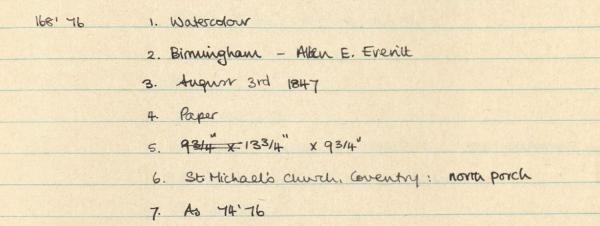 168'76 1. Watercolour
2. Birmingham - Allen E. Everitt
3. August 3rd 1847
4. Paper
5. 9 3/4" x 13 3/4" x 9 3/4"
6. St Michael's Church, Coventry: north porch
7. As 74'76